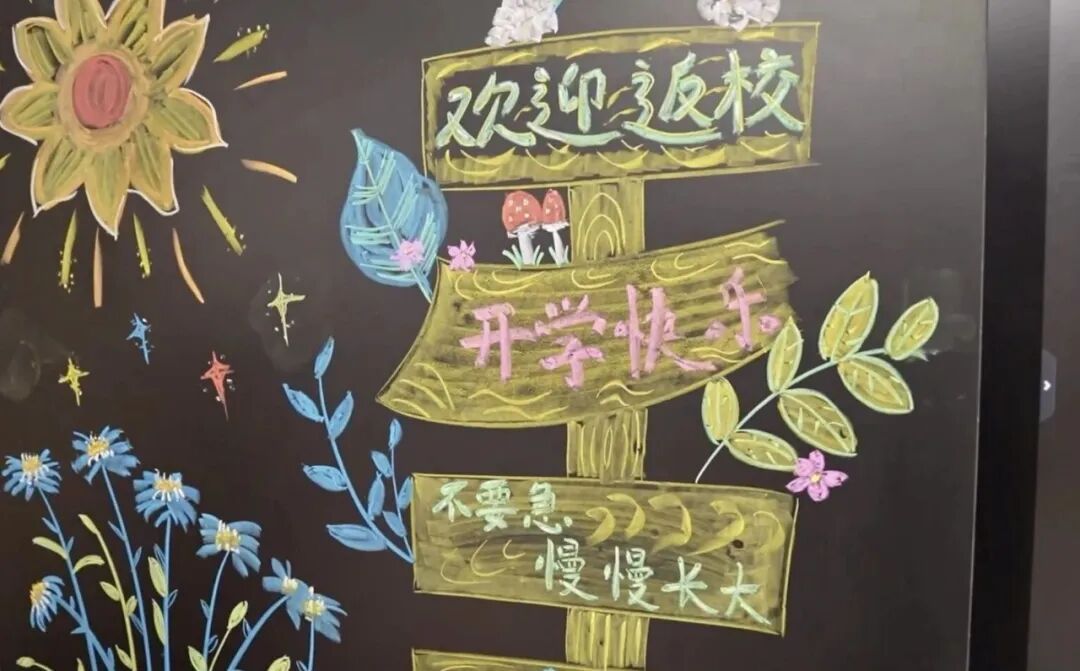 欢迎返校
开学快乐
不要急
慢慢长大